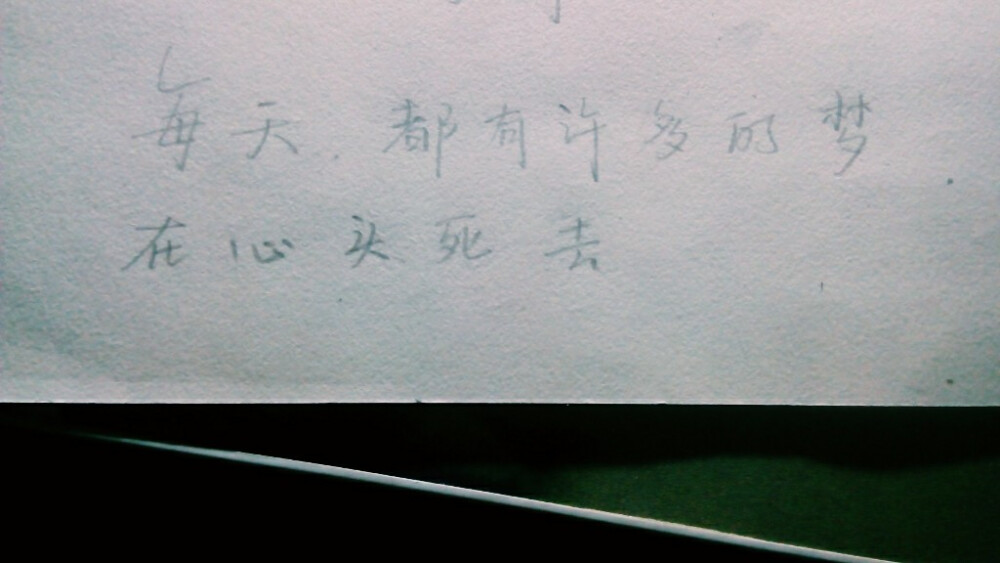 每天.都有许多的梦
在心头死去